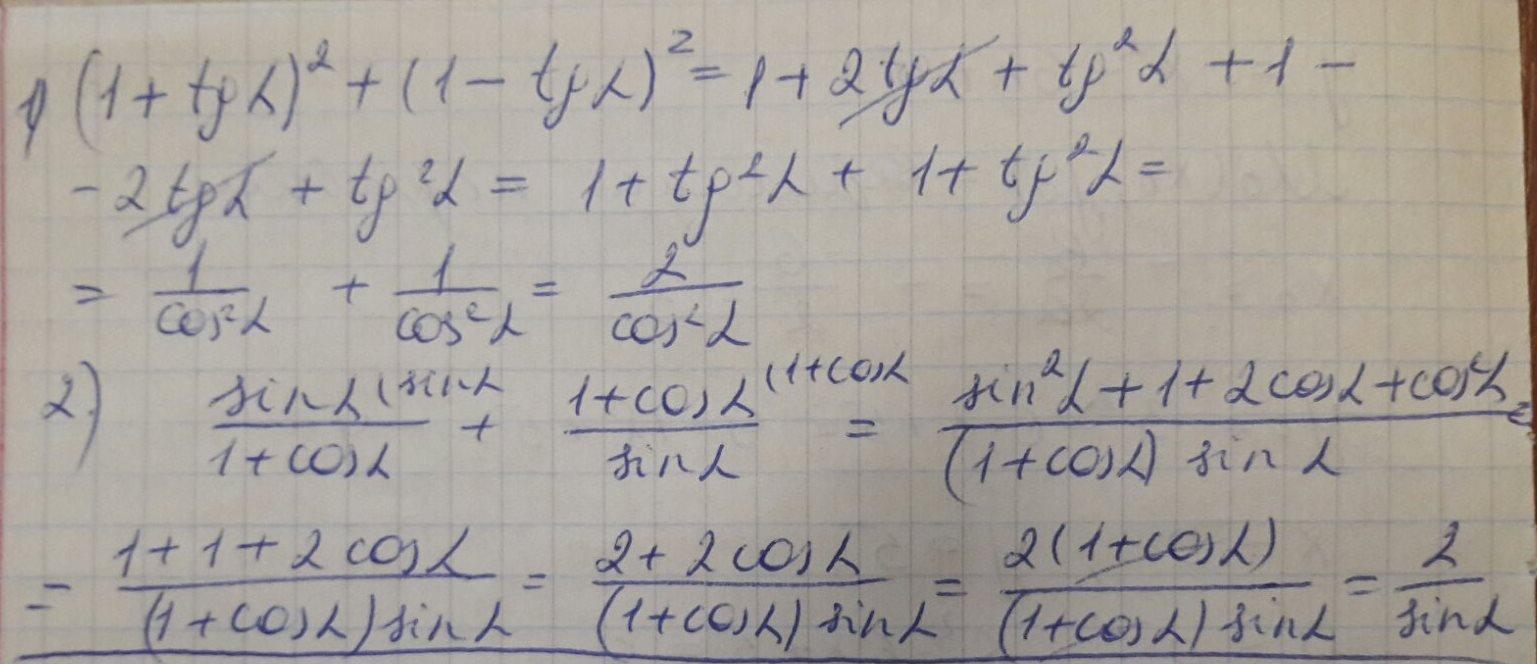 1) (1 + tg α)² + (1 - tg α)² = 1 + 2 tg α + tg² α + 1 -
- 2 tg α + tg² α = 1 + tg² α + 1 + tg² α =
= 1/cos² α + 1/cos² α = 2/cos² α
2) sin α (sin α / 1 + cos α + 1 + cos α (1 + cos α / sin α = sin² α + 1 + 2 cos α + cos² α / (1 + cos α) sin α =
= 1 + 1 + 2 cos α / (1 + cos α) sin α = 2 + 2 cos α / (1 + cos α) sin α = 2 (1 + cos α) / (1 + cos α) sin α = 2 / sin α